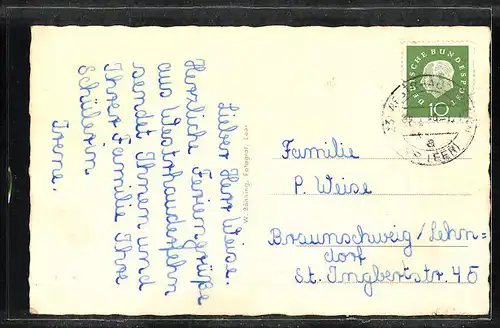 Lieber Herr Weise.
Herzliche Feriengrüße
aus Westrhauderfehn
sendet Ihnen und
Ihrer Familie Ihre
Schülerin
Irene.
W. Böhning, Fotograf, Leer
DEUTSCHE BUNDESPOST
10
a
(LEER)
Familie
P. Weise
Braunschweig/Lehn-
dorf
St. Ingbertstr. 45